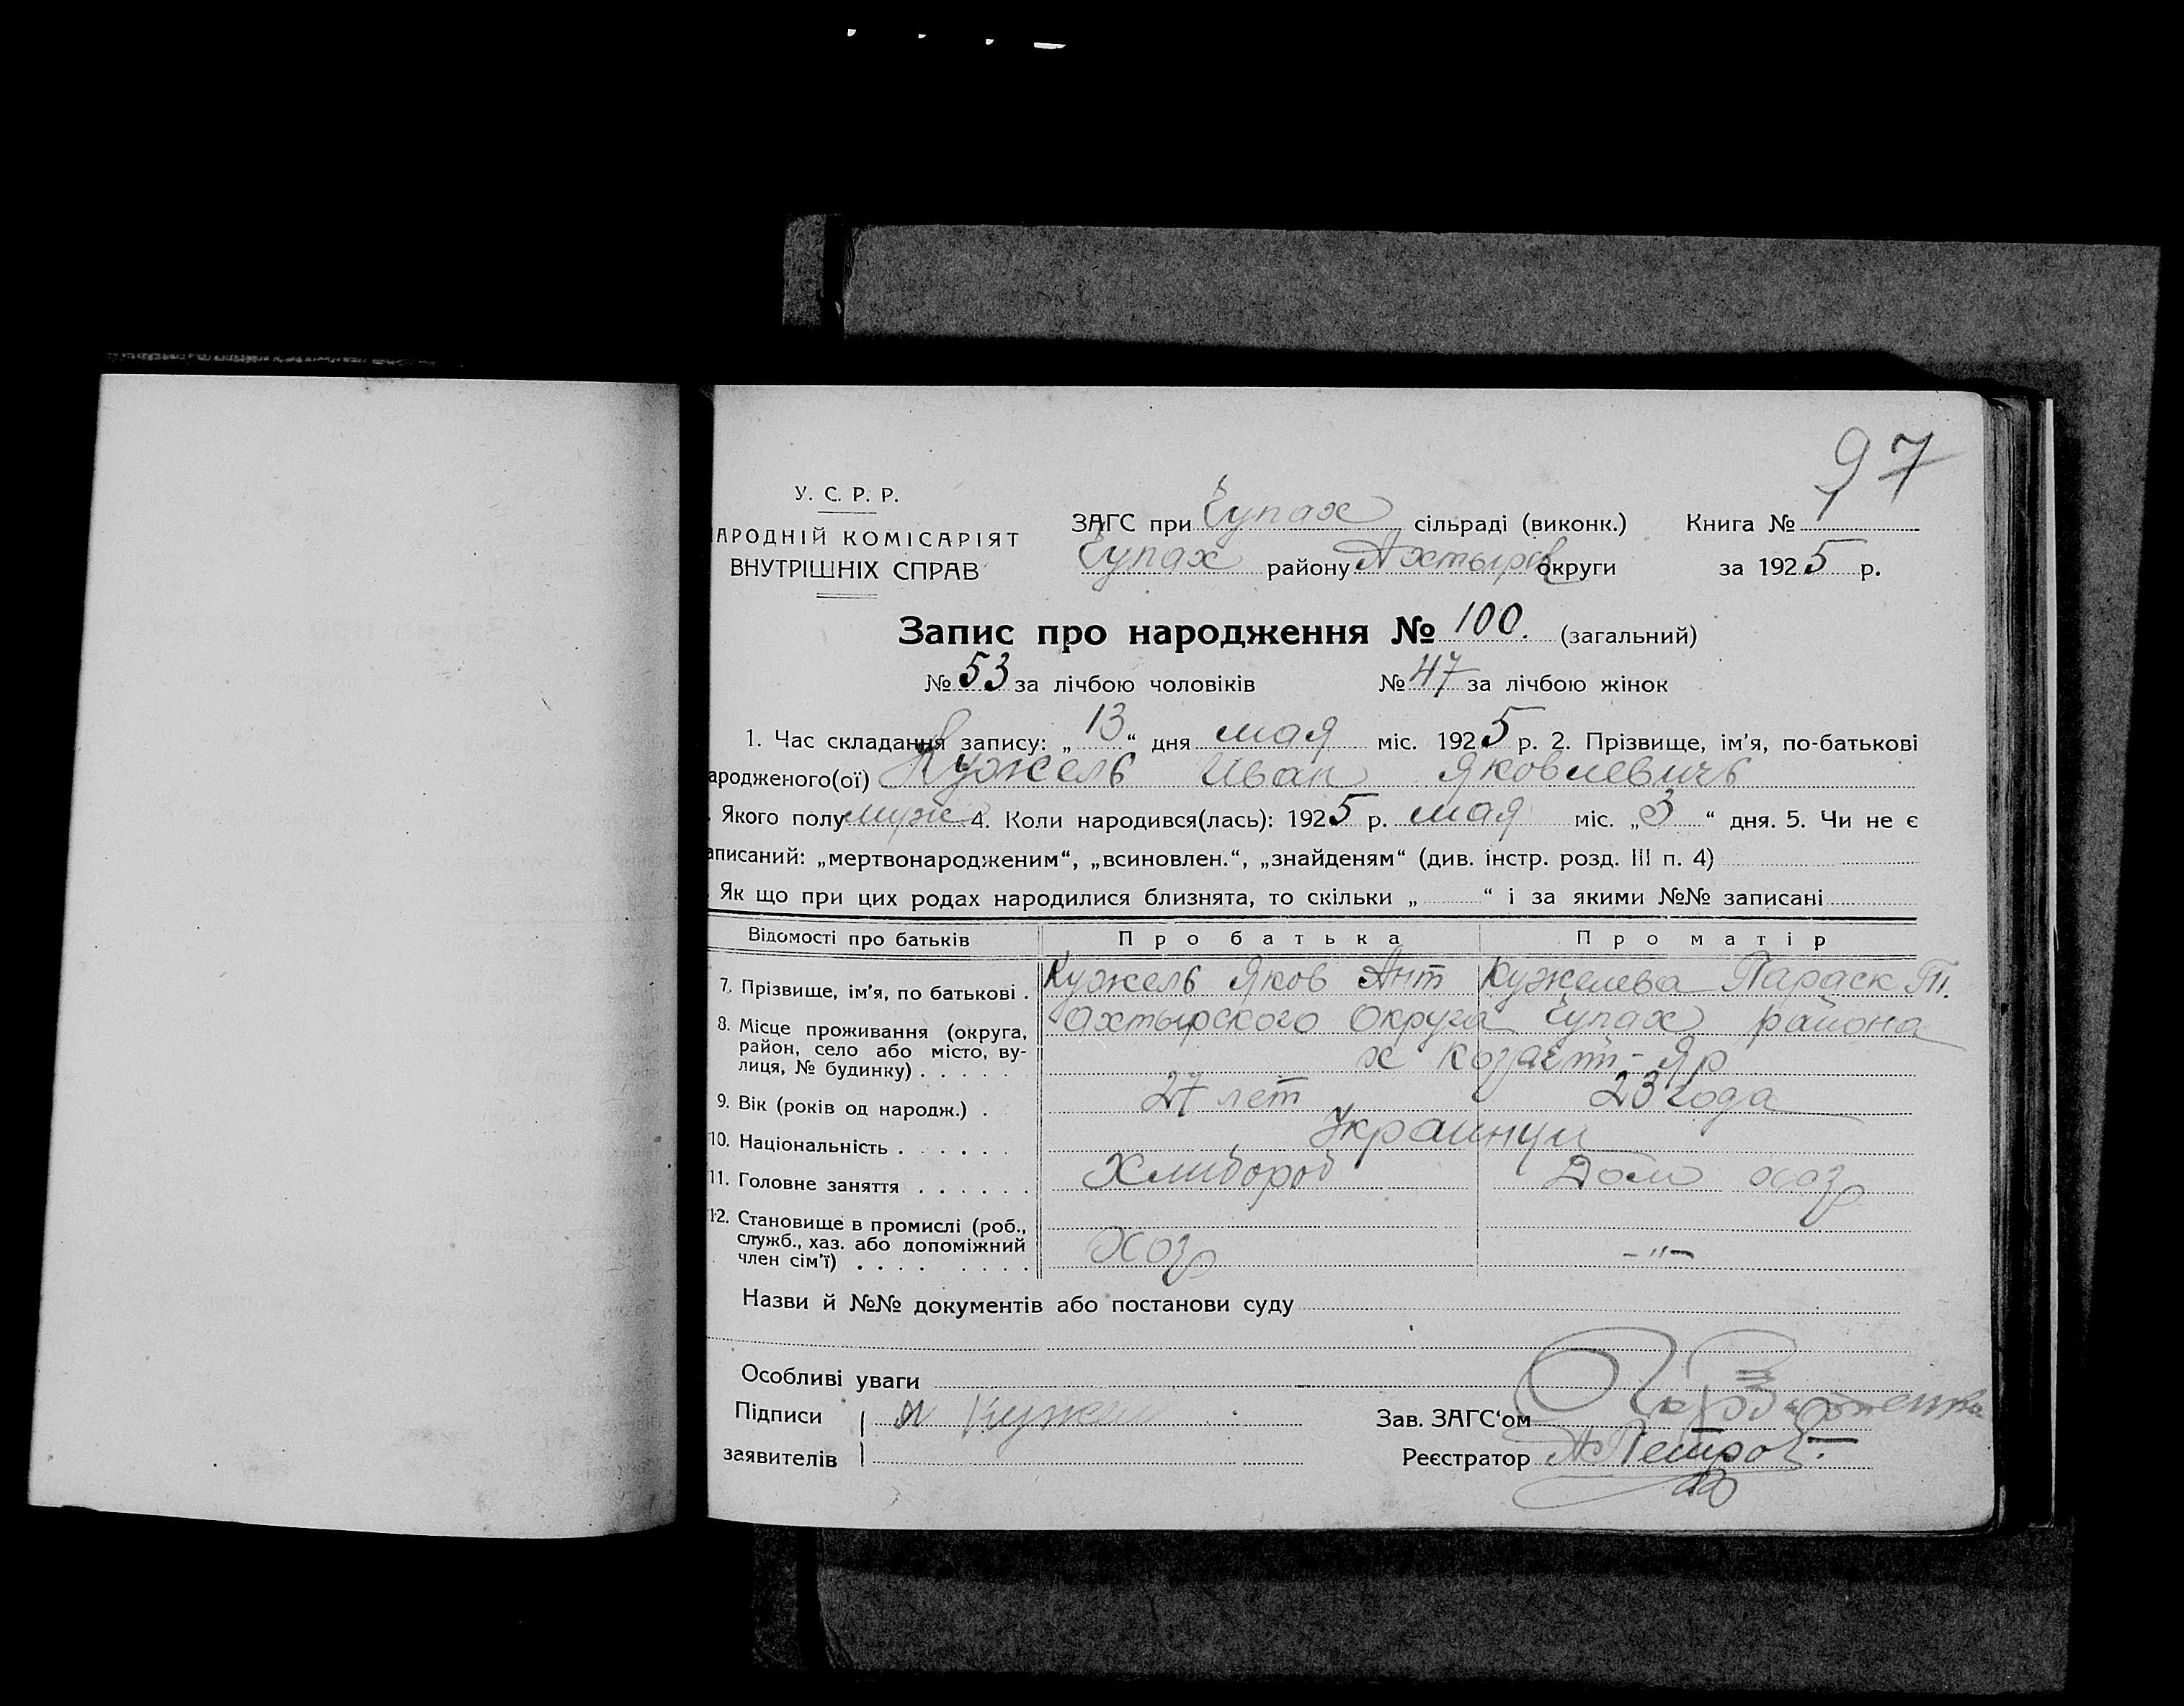 97
У. С. Р. Р.
АРОДНІЙ КОМІСАРІЯТ
ВНУТРІШНІХ СПРАВ
ЗАГС при Чупах сільраді (виконк.) Книга №
Чупах району Ахтырск округи за 1925 р.
Запис про народження № 100. (загальний)
№ 53 за лічбою чоловіків № 47 за лічбою жінок
1. Час складання запису: „13“ дня мая міс. 1925 р. 2. Прізвище, ім'я, по-батькові
ародженого(ої) Кужель Иван Яковлевичь
. Якого полу муж 4. Коли народився(лась): 1925 р. мая міс. „3“ дня. 5. Чи не є
аписаний: „мертвонародженим“, „всиновлен.“, „знайденям“ (див. інстр. розд. III п. 4)
. Як що при цих родах народилися близнята, то скільки „ “ і за якими №№ записані
Відомості про батьків Про батька Про матір
7. Прізвище, ім'я, по батькові . Кужель Яков Ант Кужелева Параск Т.
8. Місце проживання (округа, Ахтырского Округа Чупах района
район, село або місто, ву-
лиця, № будинку) . . . . . х Козачий-Яр
9. Вік (років од народж.) . 27 лет 23 года
10. Національність . . . . . . Украинци
11. Головне заняття . . . . . . Хлибороб Дом хоз
12. Становище в промислі (роб.,
служб., хаз. або допоміжний
член сім'ї) . . . . . . . . Хоз -"-
Назви й №№ документів або постанови суду
Особливі уваги
Підписи Я Кужель Зав. ЗАГС'ом
заявителів Реєстратор А Петров